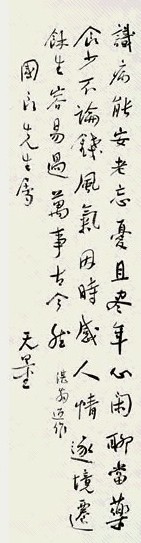 識病能安老忘憂且盡年心闲聊當藥
食少不論錢風氣因時感人情逐境遷
餘生容易過萬事古今然
近作
國良先生属
天墨